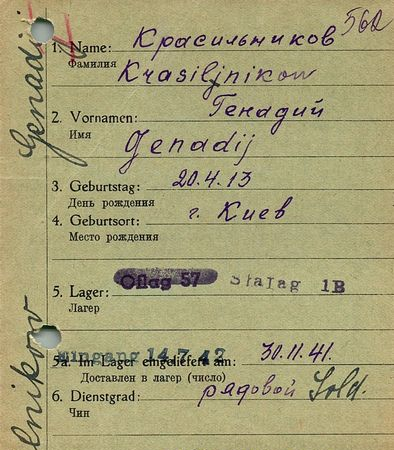 562
1. Name: Красильников
Фамилия Krasiljnikow
2. Vornamen: Генадий
Имя Genadij
3. Geburtstag: 20.4.13
День рождения
4. Geburtsort: г. Киев
Место рождения
Oflag 57 Stalag 1B
5. Lager:
Лагер
Eingang 14.7.42
5a. Im Lager eingeliefert am: 30.11.41.
Доставлен в лагер (число)
6. Dienstgrad: рядовой Sold.
Чин
Genadij
lnikow